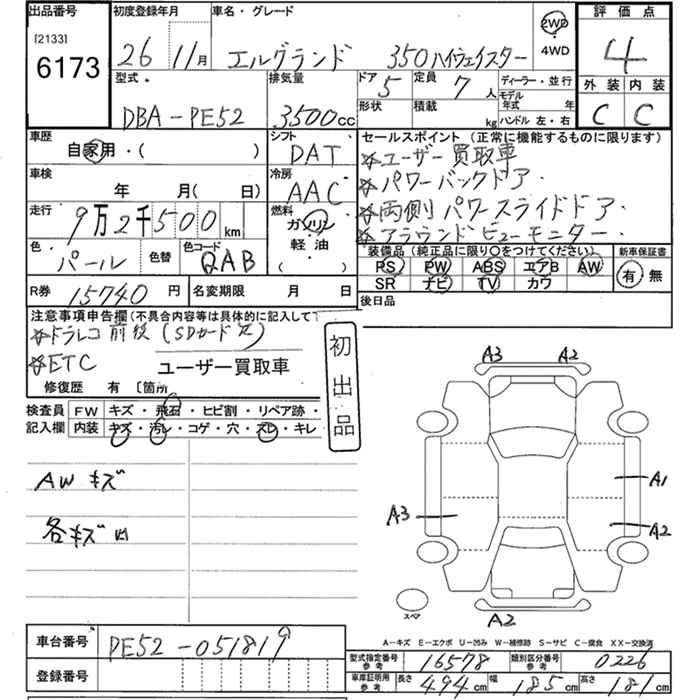 出品番号
[2133]
6173
初度登録年月
26 11月
車名・グレード
エルグランド 350ハイウェイスター
2WD
・
4WD
評価点
4
外装 内装
C C
型式・
DBA-PE52
排気量
3500cc
ドア 5
形状
定員 7人
積載 kg
ディーラー・並行
モデル
年式 年
ハンドル 左・右
車歴
自家用・( )
シフト
DAT
車検
年 月( 日)
冷房
AAC
走行
9万2千500km
燃料
ガソリン
軽油
( )
色・
パール
色替
色コード
QAB
R券 15740円
名変期限 月 日
セールスポイント(正常に機能するものに限ります)
☆ユーザー買取車
☆パワーバックドア・
☆両側パワースライドドア・
☆アラウンドビューモニター・
装備品(純正品に限り○をつけてください)
PS PW ABS エアB AW
SR ナビ TV カワ
新車保証書
有・無
後日品
注意事項申告欄(不具合内容等は具体的に記入して
☆ドラレコ前後(SDカード欠)
☆ETC
ユーザー買取車
修復歴 有 〔箇所
初出品
検査員
記入欄
FW キズ・飛石・ヒビ割・リペア跡・
内装 キズ・汚レ・コゲ・穴・スレ・キレ
AWキズ
各キズ凹
A3 A2
A1
A3
A2
スペア
A2
A-キズ E-エクボ U-凹み W-補修跡 S-サビ C-腐食 XX-交換済
車台番号 PE52-051819
登録番号
型式指定番号
参考
16578
類別区分番号
参考
0226
車庫証明用
参考
長さ 494cm 幅 185cm 高さ 181cm